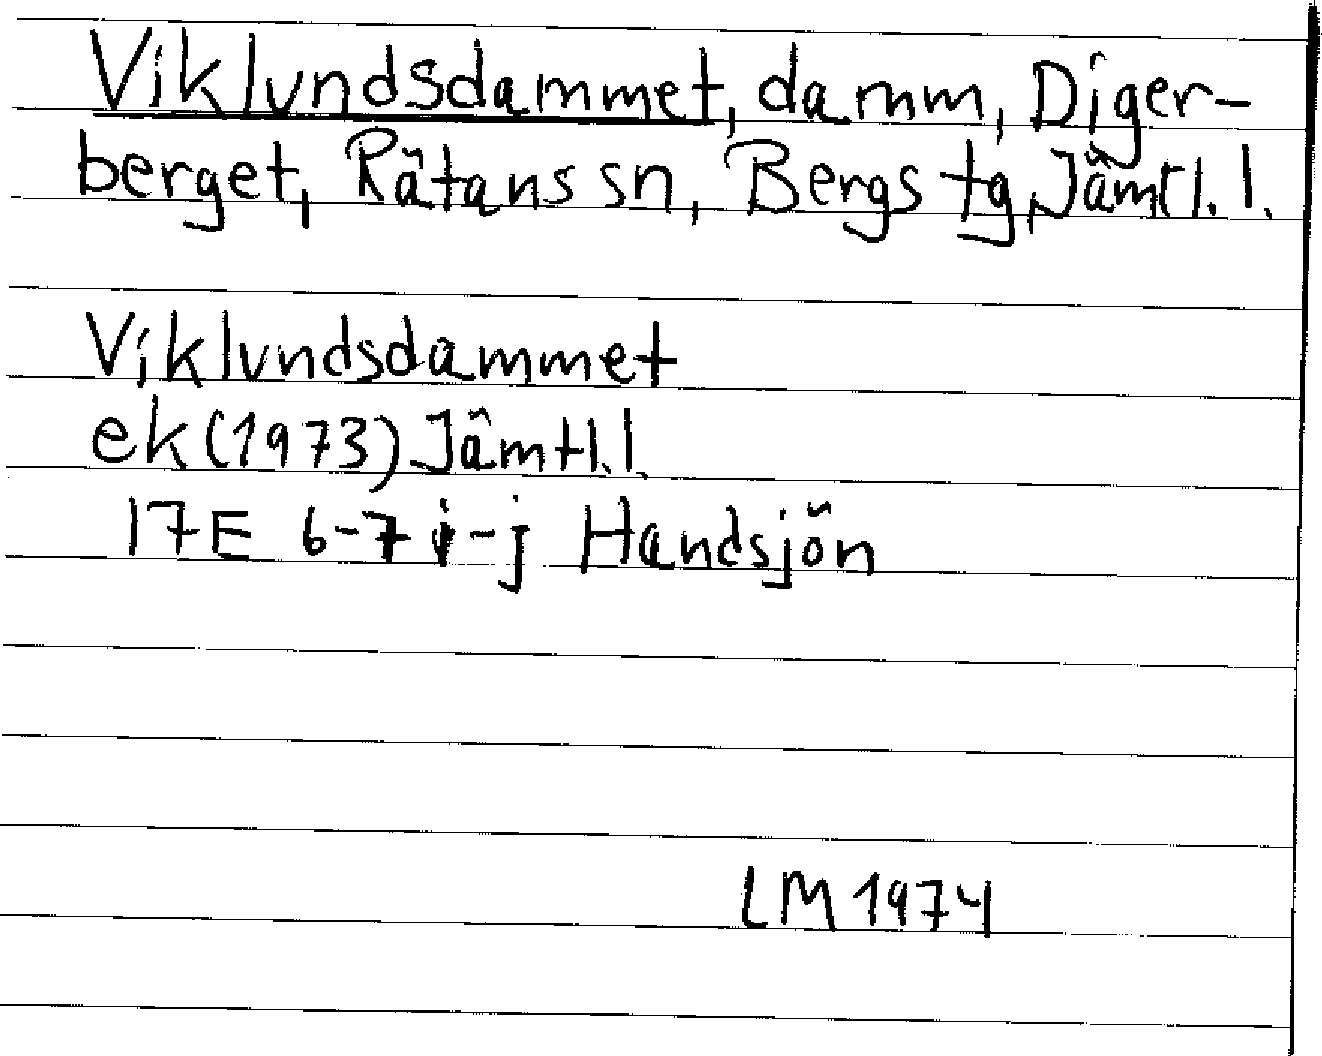 Viklundsdammet, damm, Diger-
berget, Rätans sn, Bergs tg, Jämtl. l.
Viklundsdammet
ek (1973) Jämtl. l.
17E 6-7 i-j Handsjön
LM 1974